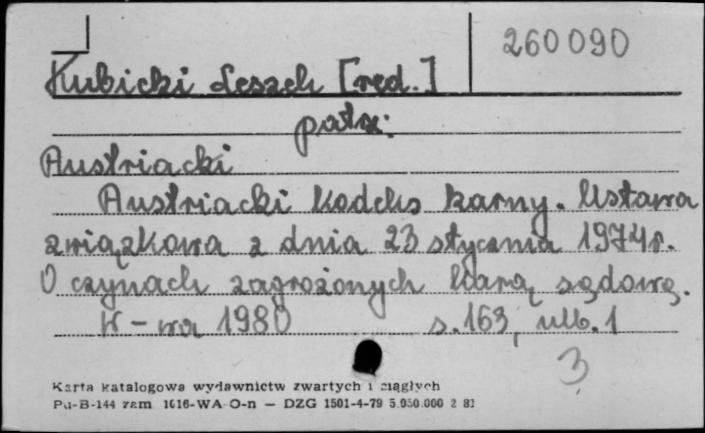 260090
Kubicki Leszek [red.]
patrz:
Austriacki
Austriacki kodeks karny. Ustawa
związkowa z dnia 23 stycznia 1974r.
O czynach zagrożonych karą sądową.
W-wa 1980 s. 163, nlb. 1
3
Karta katalogowa wydawnictw zwartych i ciągłych
Pu-B-144 zam. 1616-WA-O-n — DZG 1501-4-79 5.050.000 2 81